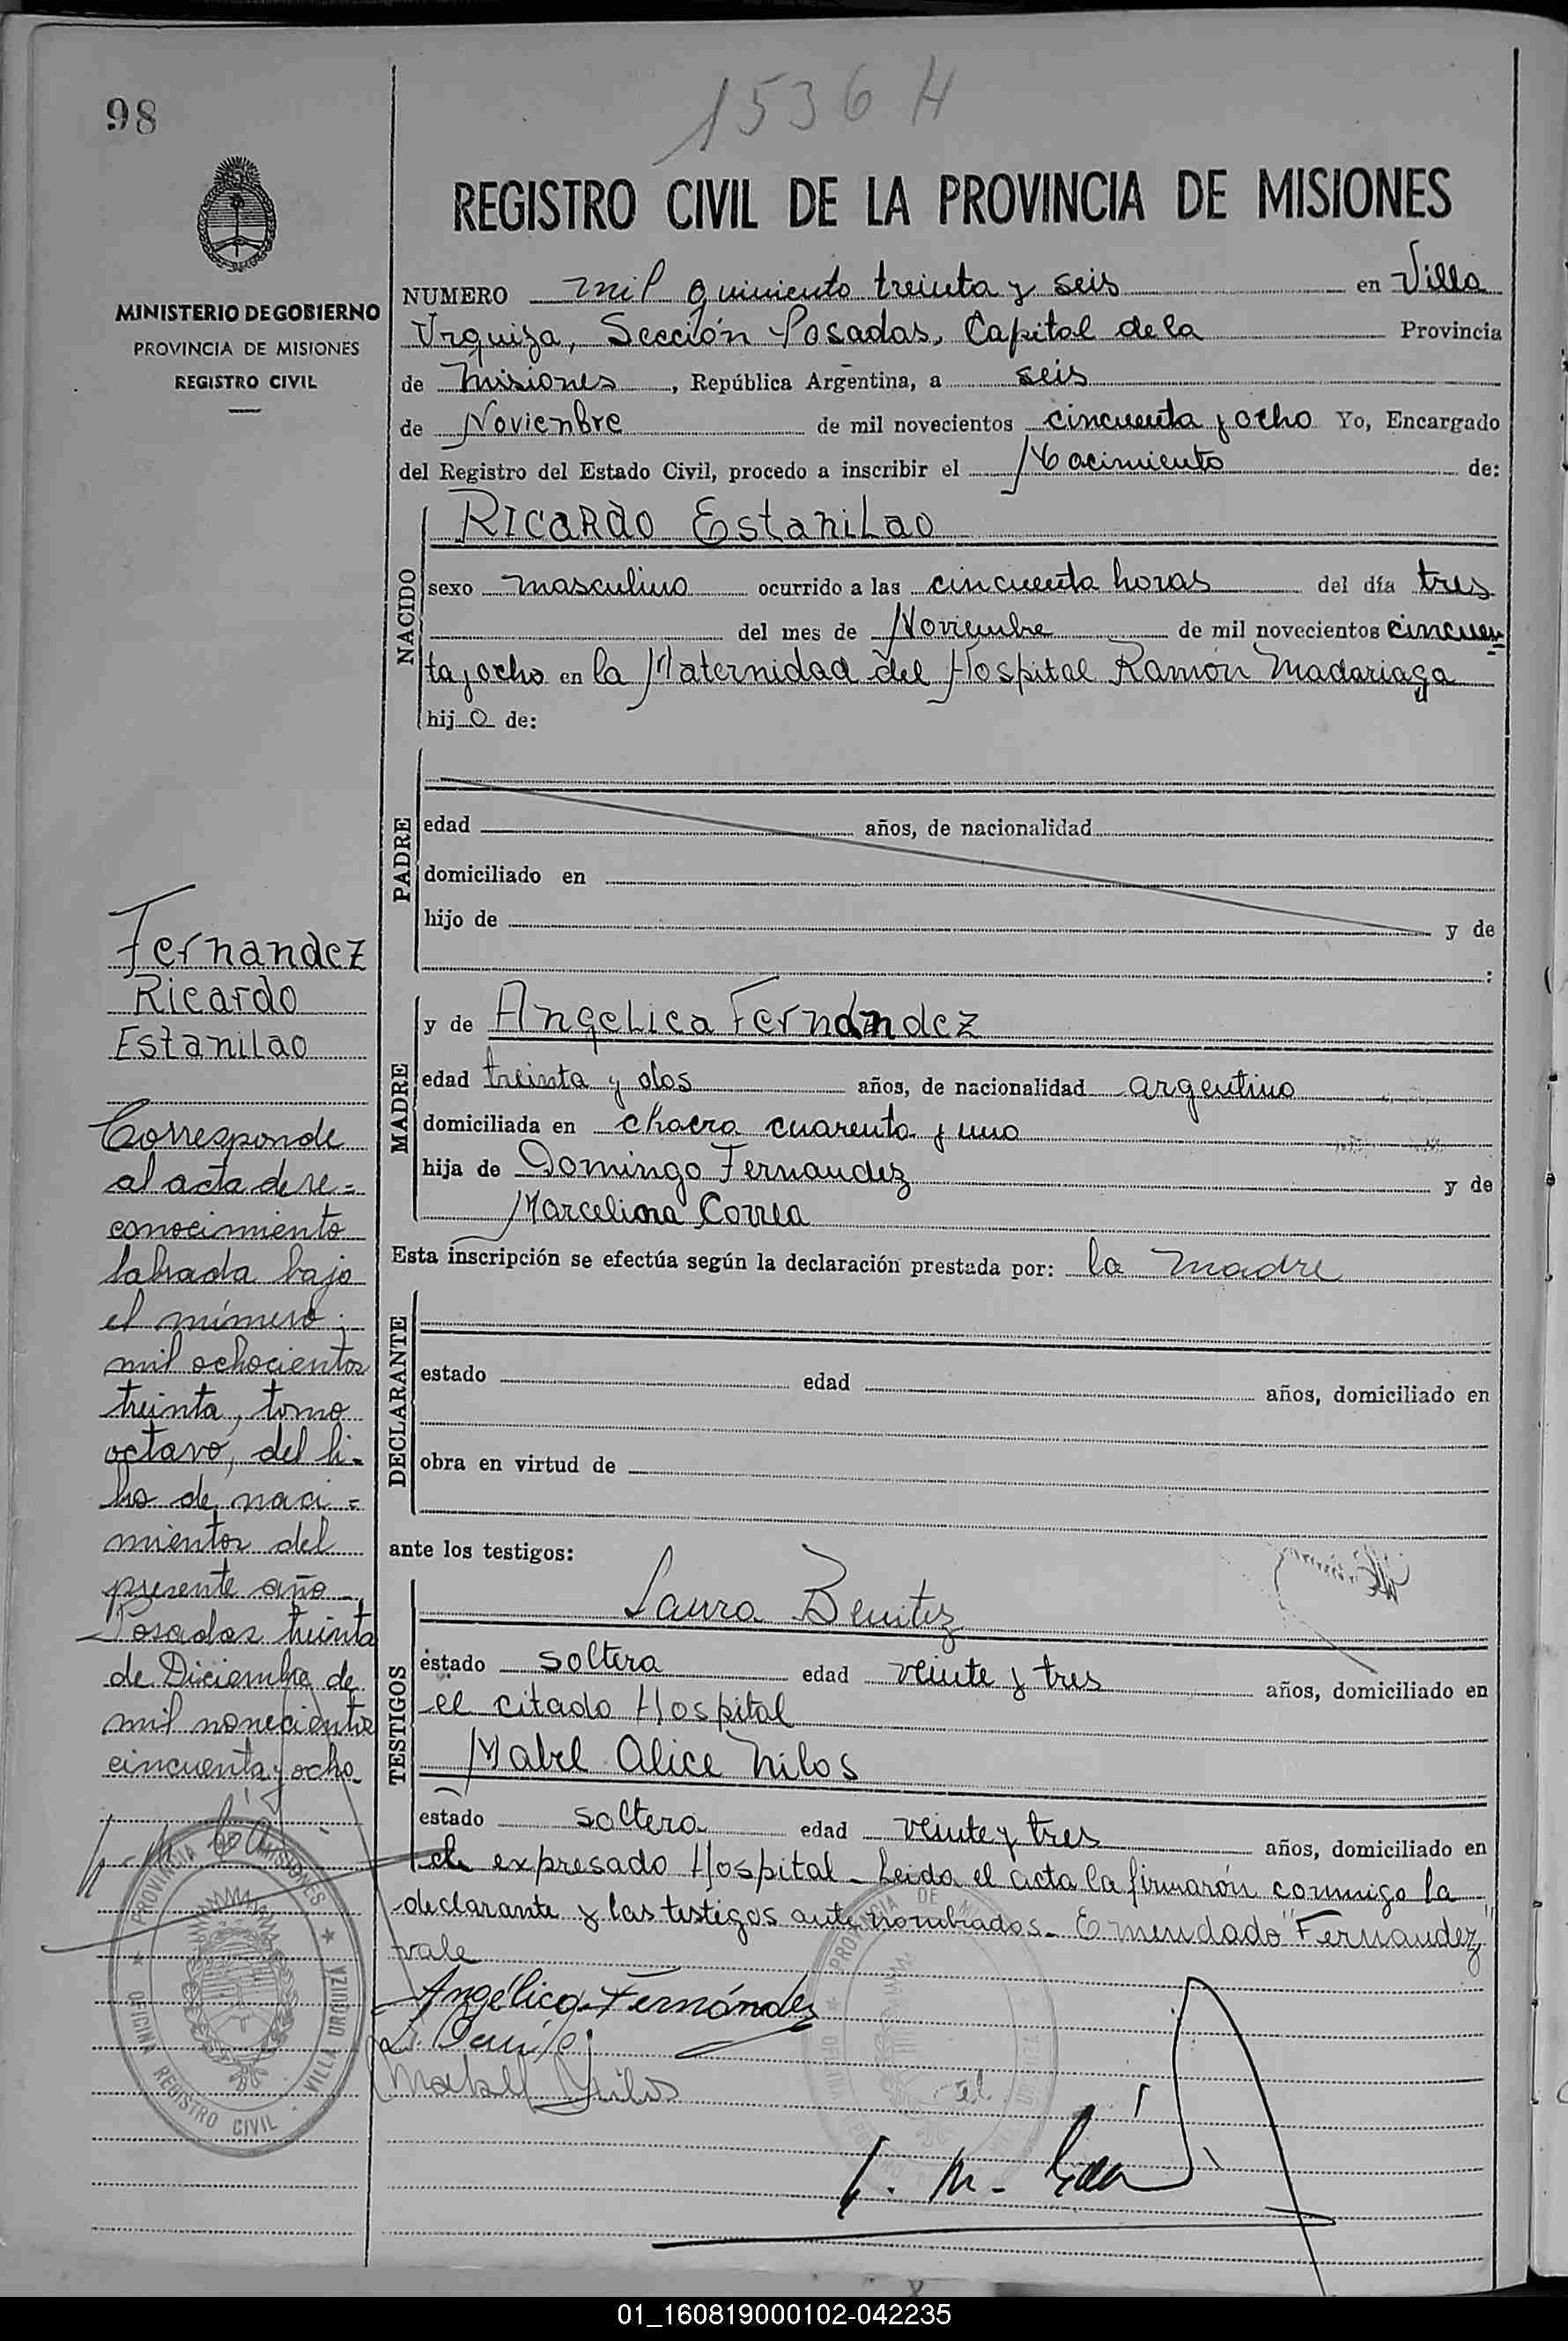 98
1536 H
REGISTRO CIVIL DE LA PROVINCIA DE MISIONES
MINISTERIO DE GOBIERNO
PROVINCIA DE MISIONES
REGISTRO CIVIL
NUMERO mil quiniento treinta y seis en Villa
Urquiza, Sección Posadas, Capital de la Provincia
de Misiones, República Argentina, a seis
de Novienbre de mil novecientos cincuenta y ocho Yo, Encargado
del Registro del Estado Civil, procedo a inscribir el Nacimiento de:
NACIDO
Ricardo Estanilao
sexo masculino ocurrido a las cincuenta horas del día tres
del mes de Noviembre de mil novecientos cincuen=
ta y ocho en la Maternidad del Hospital Ramón Madariaga
hijo de:
PADRE
edad años, de nacionalidad
domiciliado en
hijo de y de
:
MADRE
y de Angelica Fernandez
edad treinta y dos años, de nacionalidad argentino
domiciliada en chacra cuarenta y uno
hija de Domingo Fernandez y de
Marcelina Correa
Esta inscripción se efectúa según la declaración prestada por: la madre
DECLARANTE
estado edad años, domiciliado en
obra en virtud de
ante los testigos:
TESTIGOS
Laura Benitez
estado soltera edad veinte y tres años, domiciliado en
el citado Hospital
Mabel Alice Nilos
estado soltera edad veinte y tres años, domiciliado en
el expresado Hospital - Leida el acta la firmarón conmigo la
declarante y las testigos ante nombrados - Emendado "Fernandez"
vale
Angélica Fernández
L. Benítez
Mabel
Fernandez
Ricardo
Estanilao
Corresponde
al acta de re=
conocimiento
labrada bajo
el número
mil ochocientos
treinta, tomo
octavo, del li-
bro de naci=
mientos del
presente año
Posadas treinta
de Diciembre de
mil novecientos
cincuenta y ocho
PROVINCIA DE MISIONES
OFICINA REGISTRO CIVIL - VILLA URQUIZA
01_160819000102-042235